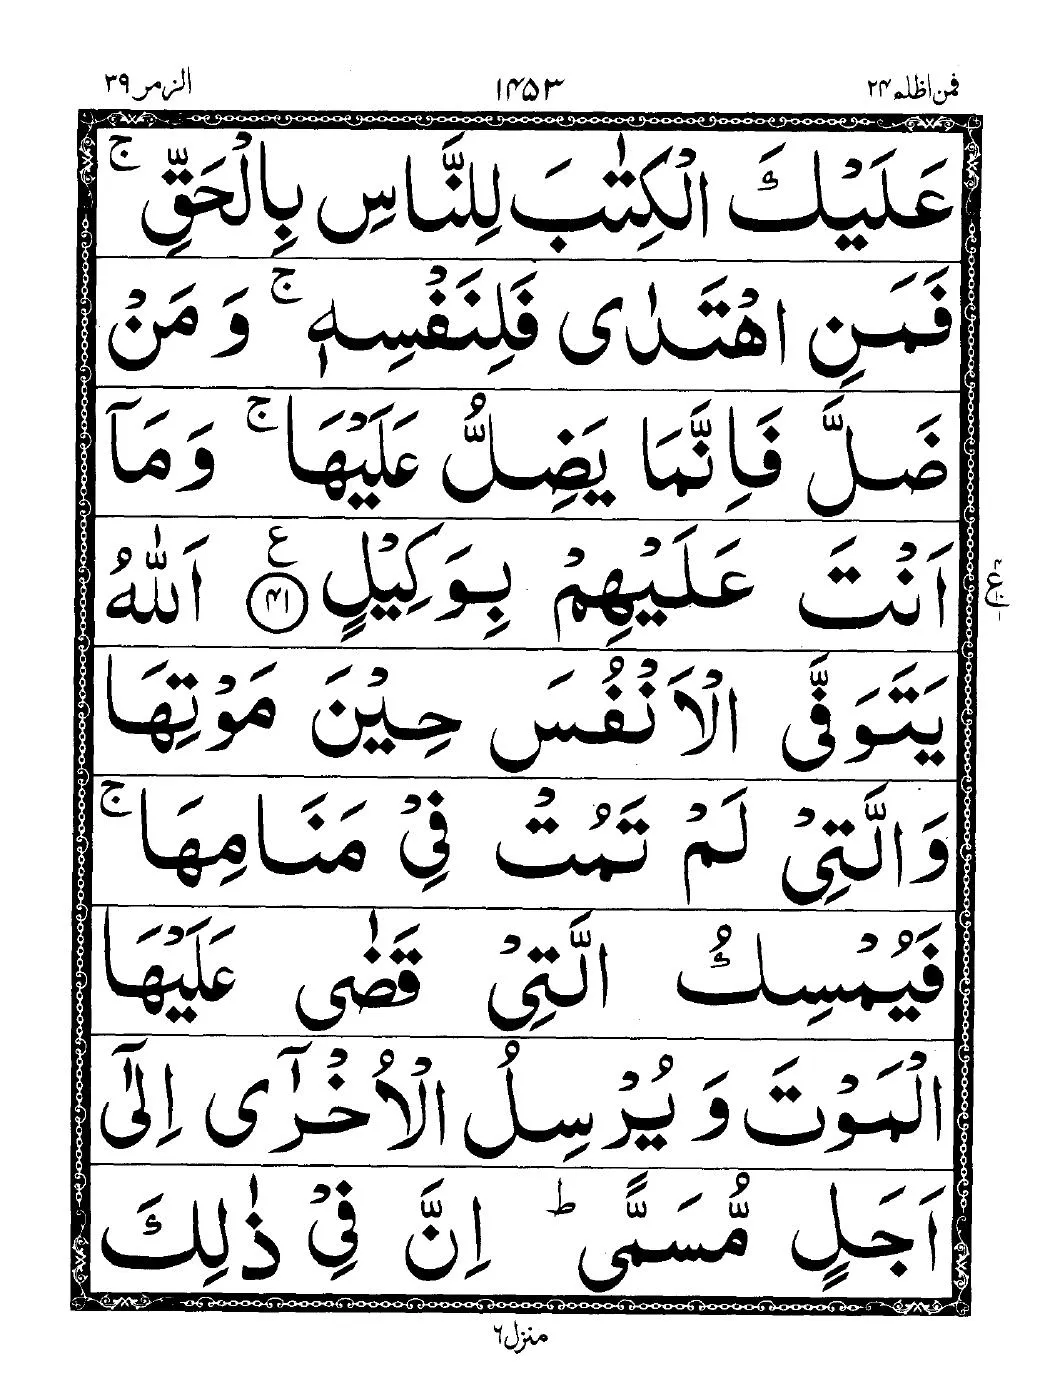 فمن اظلم ۲۴
۱۴۵۳
الزمر ۳۹
عَلَيْكَ الْكِتٰبَ لِلنَّاسِ بِالْحَقِّ ۚ
فَمَنِ اهْتَدٰى فَلِنَفْسِهٖ ۚ وَ مَنْ
ضَلَّ فَاِنَّمَا يَضِلُّ عَلَيْهَا ۚ وَ مَآ
اَنْتَ عَلَيْهِمْ بِوَكِيْلٍ ع ۴۱ اَللّٰهُ
يَتَوَفَّى الْاَنْفُسَ حِيْنَ مَوْتِهَا
وَ الَّتِيْ لَمْ تَمُتْ فِيْ مَنَامِهَا ۚ
فَيُمْسِكُ الَّتِيْ قَضٰى عَلَيْهَا
الْمَوْتَ وَ يُرْسِلُ الْاُخْرٰٓى اِلٰٓى
اَجَلٍ مُّسَمًّى ؕ اِنَّ فِيْ ذٰلِكَ
منزل ۶